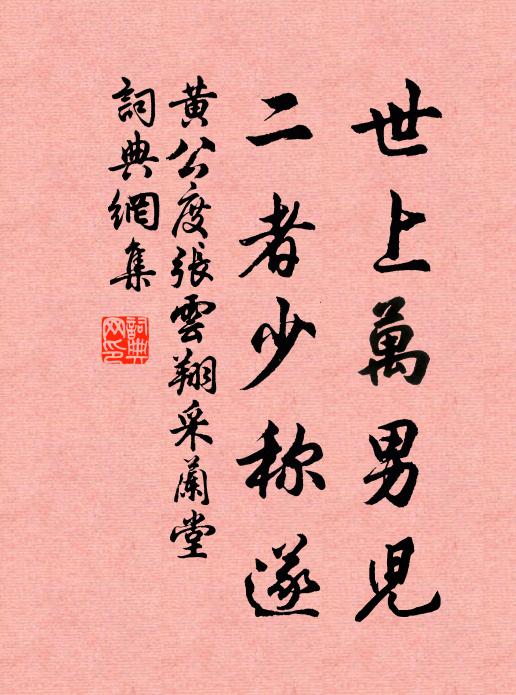 世上萬男兒
二者少称遂
黄公度張雲翔采蘭堂
詞典網集
詞典網印